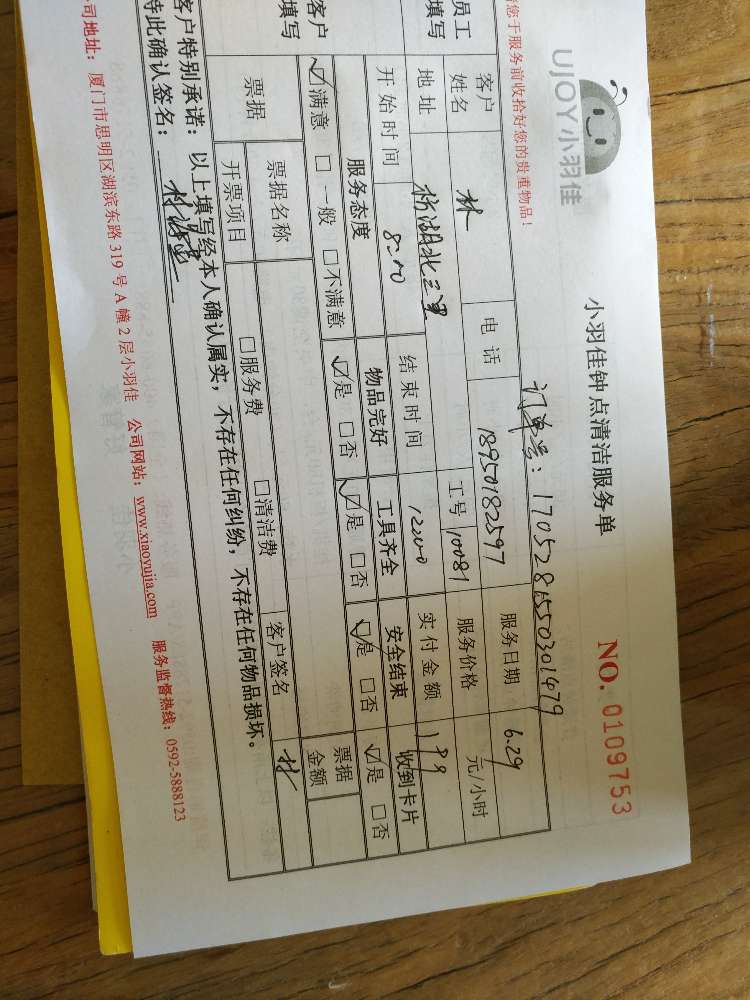 UJOY小羽佳
小羽佳钟点清洁服务单
NO. 0109753
您于服务前收拾好您的贵重物品!
订单号: 1705281550301479
员工填写
客户姓名 林 电话 18950182597 服务日期 6.29
地址 杨湖北三里 工号 10081 服务价格 元/小时
开始时间 8:00 结束时间 12:00 实付金额 199
客户填写
服务态度 物品完好 工具齐全 安全结束 收到卡片
☑满意 □一般 □不满意 ☑是 □否 ☑是 □否 ☑是 □否 ☑是 □否
票据 票据名称 票据金额
开票项目 □服务费 □清洁费 客户签名 林
客户特别承诺: 以上填写经本人确认属实, 不存在任何纠纷, 不存在任何物品损坏。
特此确认签名:
公司地址: 厦门市思明区湖滨东路 319 号 A 幢 2 层小羽佳 公司网站: www.xiaoyujia.com 服务监督热线: 0592-5888123